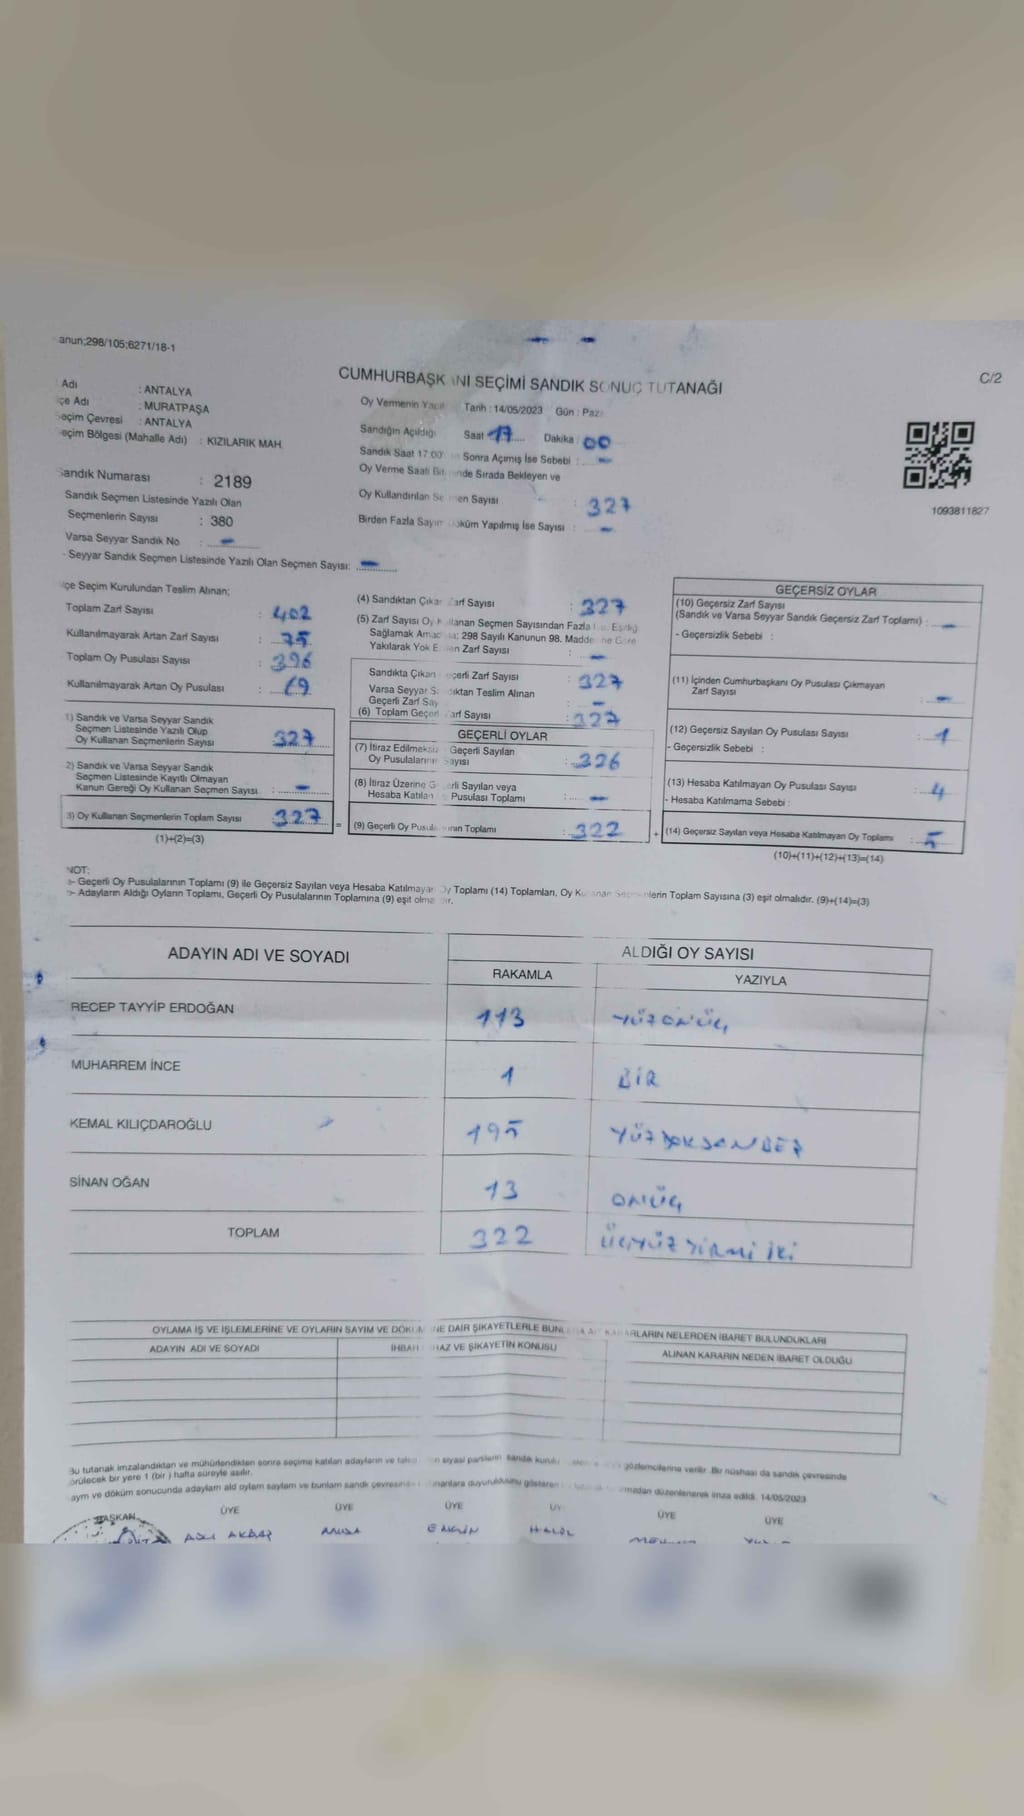 anun;298/105;6271/18-1
CUMHURBAŞK NI SEÇİMİ SANDIK SONUÇ TUTANAĞI
C/2
Adı : ANTALYA
çe Adı : MURATPAŞA
eçim Çevresi : ANTALYA
eçim Bölgesi (Mahalle Adı) : KIZILARIK MAH.
Sandık Numarası : 2189
Sandık Seçmen Listesinde Yazılı Olan
Seçmenlerin Sayısı : 380
Varsa Seyyar Sandık No : -
- Seyyar Sandık Seçmen Listesinde Yazılı Olan Seçmen Sayısı: -
Oy Vermenin Yapıl Tarih : 14/05/2023 Gün : Paz
Sandığın Açıldığı Saat 17 Dakika : 00
Sandık Saat 17:00 Sonra Açımış İse Sebebi : -
Oy Verme Saati Bit nde Sırada Bekleyen ve
Oy Kullandırılan Se men Sayısı : 327
Birden Fazla Sayım öküm Yapılmış İse Sayısı : -
1093811827
çe Seçim Kurulundan Teslim Alınan;
Toplam Zarf Sayısı : 402
Kullanılmayarak Artan Zarf Sayısı : 75
Toplam Oy Pusulası Sayısı : 396
Kullanılmayarak Artan Oy Pusulası : 69
1) Sandık ve Varsa Seyyar Sandık
Seçmen Listesinde Yazılı Olup
Oy Kullanan Seçmenlerin Sayısı 327
2) Sandık ve Varsa Seyyar Sandık
Seçmen Listesinde Kayıtlı Olmayan
Kanun Gereği Oy Kullanan Seçmen Sayısı : -
3) Oy Kullanan Seçmenlerin Toplam Sayısı 327 =
(1)+(2)=(3)
(4) Sandıktan Çıkan Zarf Sayısı : 327
(5) Zarf Sayısı Oy Kullanan Seçmen Sayısından Fazla Eşitliği
Sağlamak Amac 298 Sayılı Kanunun 98. Madde ne Göre
Yakılarak Yok E en Zarf Sayısı : -
Sandıkta Çıkan eçerli Zarf Sayısı : 327
Varsa Seyyar S dıktan Teslim Alınan
Geçerli Zarf Say : -
(6) Toplam Geçer arf Sayısı : 327
GEÇERLİ OYLAR
(7) İtiraz Edilmeksiz Geçerli Sayılan
Oy Pusulalarının Sayısı : 326
(8) İtiraz Üzerine G erli Sayılan veya
Hesaba Katılan Pusulası Toplamı : -
(9) Geçerli Oy Pusula ının Toplamı : 322 +
GEÇERSİZ OYLAR
(10) Geçersiz Zarf Sayısı
(Sandık ve Varsa Seyyar Sandık Geçersiz Zarf Toplamı) : -
- Geçersizlik Sebebi :
(11) İçinden Cumhurbaşkanı Oy Pusulası Çıkmayan
Zarf Sayısı : -
(12) Geçersiz Sayılan Oy Pusulası Sayısı : 1
- Geçersizlik Sebebi :
(13) Hesaba Katılmayan Oy Pusulası Sayısı : 4
- Hesaba Katılmama Sebebi :
(14) Geçersiz Sayılan veya Hesaba Katılmayan Oy Toplamı : 5
(10)+(11)+(12)+(13)=(14)
NOT:
- Geçerli Oy Pusulalarının Toplamı (9) ile Geçersiz Sayılan veya Hesaba Katılmayan Oy Toplamı (14) Toplamları, Oy Kullanan Seçmenlerin Toplam Sayısına (3) eşit olmalıdır. (9)+(14)=(3)
- Adayların Aldığı Oyların Toplamı, Geçerli Oy Pusulalarının Toplamına (9) eşit olma dır.
ADAYIN ADI VE SOYADI
ALDIĞI OY SAYISI
RAKAMLA YAZIYLA
RECEP TAYYİP ERDOĞAN 113 YÜZONÜÇ
MUHARREM İNCE 1 BİR
KEMAL KILIÇDAROĞLU 195 YÜZDOKSANBEŞ
SİNAN OĞAN 13 ONÜÇ
TOPLAM 322 ÜÇYÜZ YİRMİ İKİ
OYLAMA İŞ VE İŞLEMLERİNE VE OYLARIN SAYIM VE DÖKÜM NE DAİR ŞİKAYETLERLE BUN KARARLARIN NELERDEN İBARET BULUNDUKLARI
ADAYIN ADI VE SOYADI İHBAR HAZ VE ŞİKAYETİN KONUSU ALINAN KARARIN NEDEN İBARET OLDUĞU
Bu tutanak imzalandıktan ve mühürlendikten sonra seçime katılan adayların ve siyasi partilerin sandık kurulu gözlemcilerine verilir. Bir nüshası da sandık çevresinde
görülecek bir yere 1 (bir) hafta süreyle asılır.
ayım ve döküm sonucunda adayların ald oyların sayıların ve bunların sandık çevresinde duyurulduğunu gösteren düzenlenerek imza edildi. 14/05/2023
BAŞKAN ÜYE ÜYE ÜYE ÜYE ÜYE
AKBAŞ MUSA ENGİN HALİL